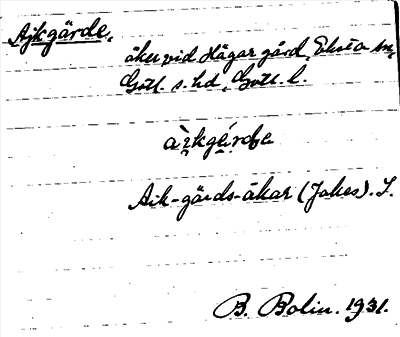 Ajkgärde.
åker vid Hägar gård, Eksta sn,
Gotl. s. hd, Gotl. l.
Aik-gärds-åkar (Jakes). L.
B. Bolin. 1931.